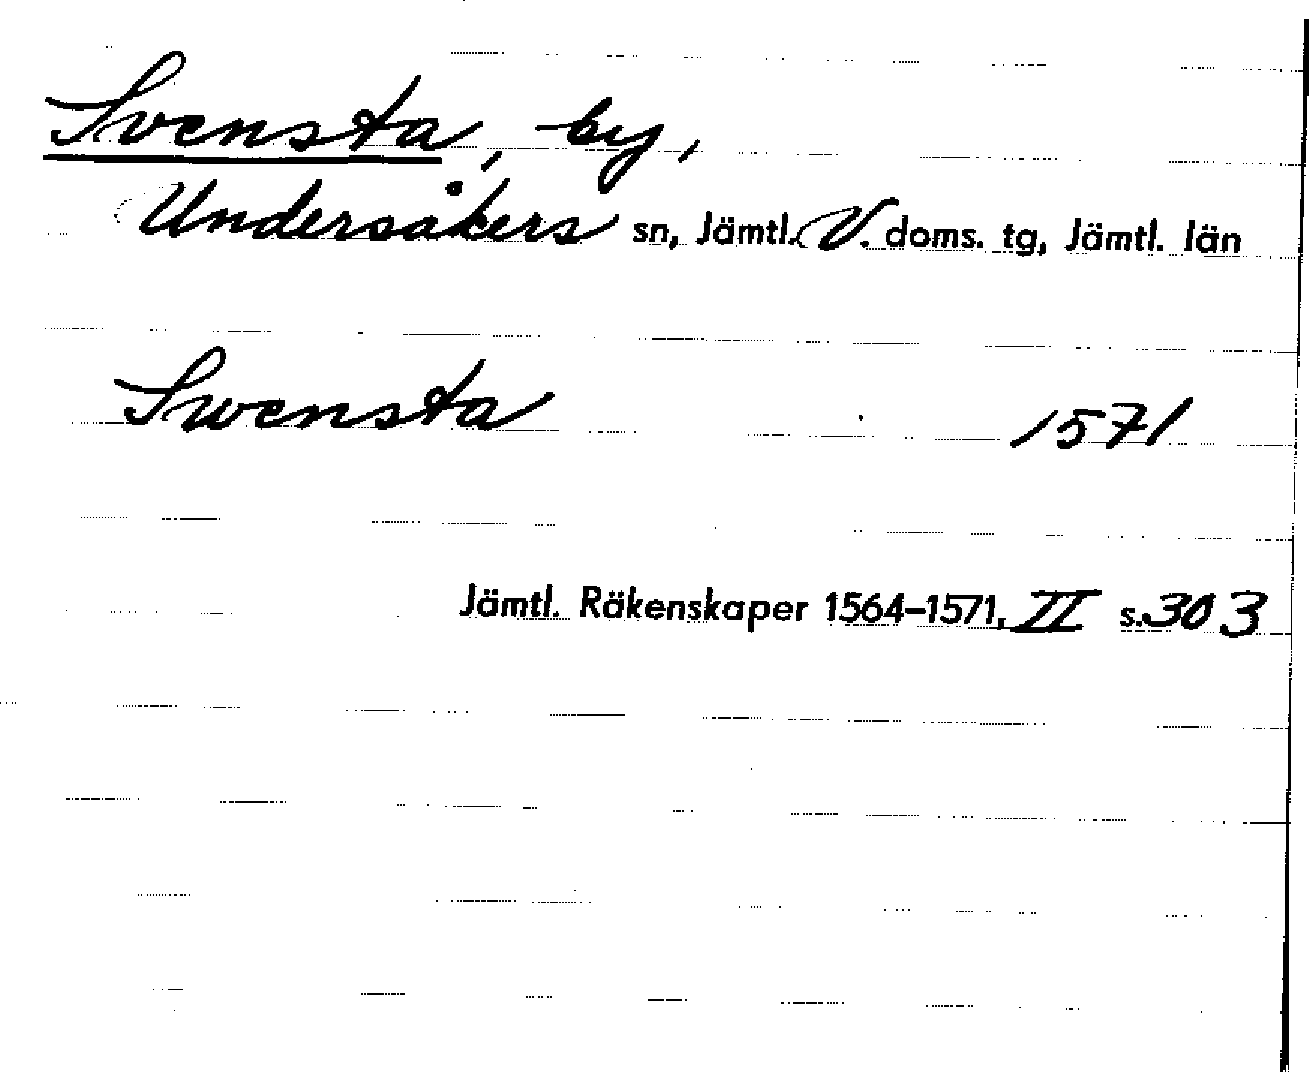 Svensta, by,
Undersåkers sn, Jämtl. V. doms. tg, Jämtl. län
Swensta 1571
Jämtl. Räkenskaper 1564–1571, II s. 303